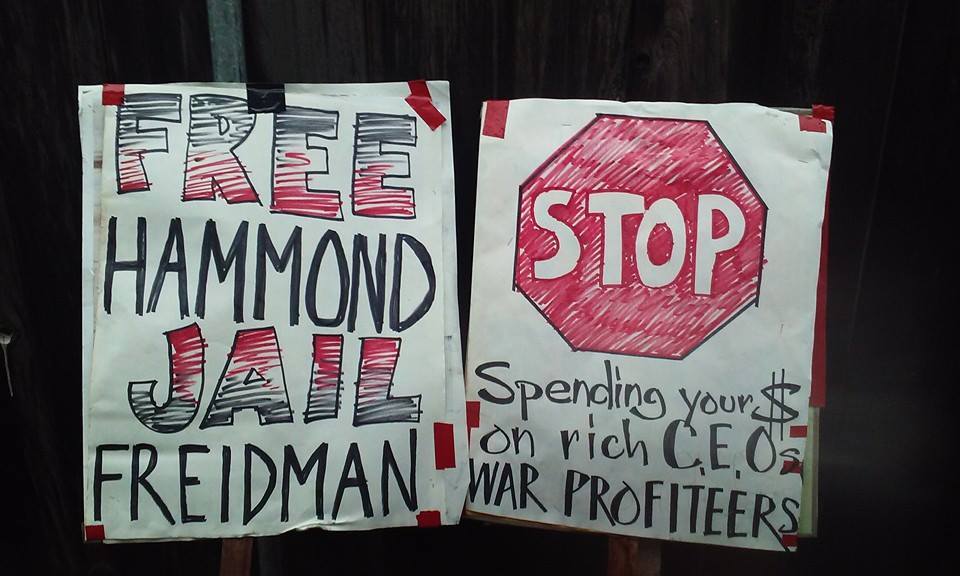 FREE
HAMMOND
JAIL
FREIDMAN
STOP
Spending your $
on rich C.E.Os
WAR PROFITEERS